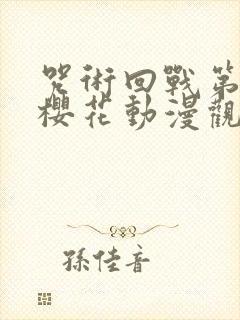 咒術回戰第
櫻花動漫觀
孫佳音